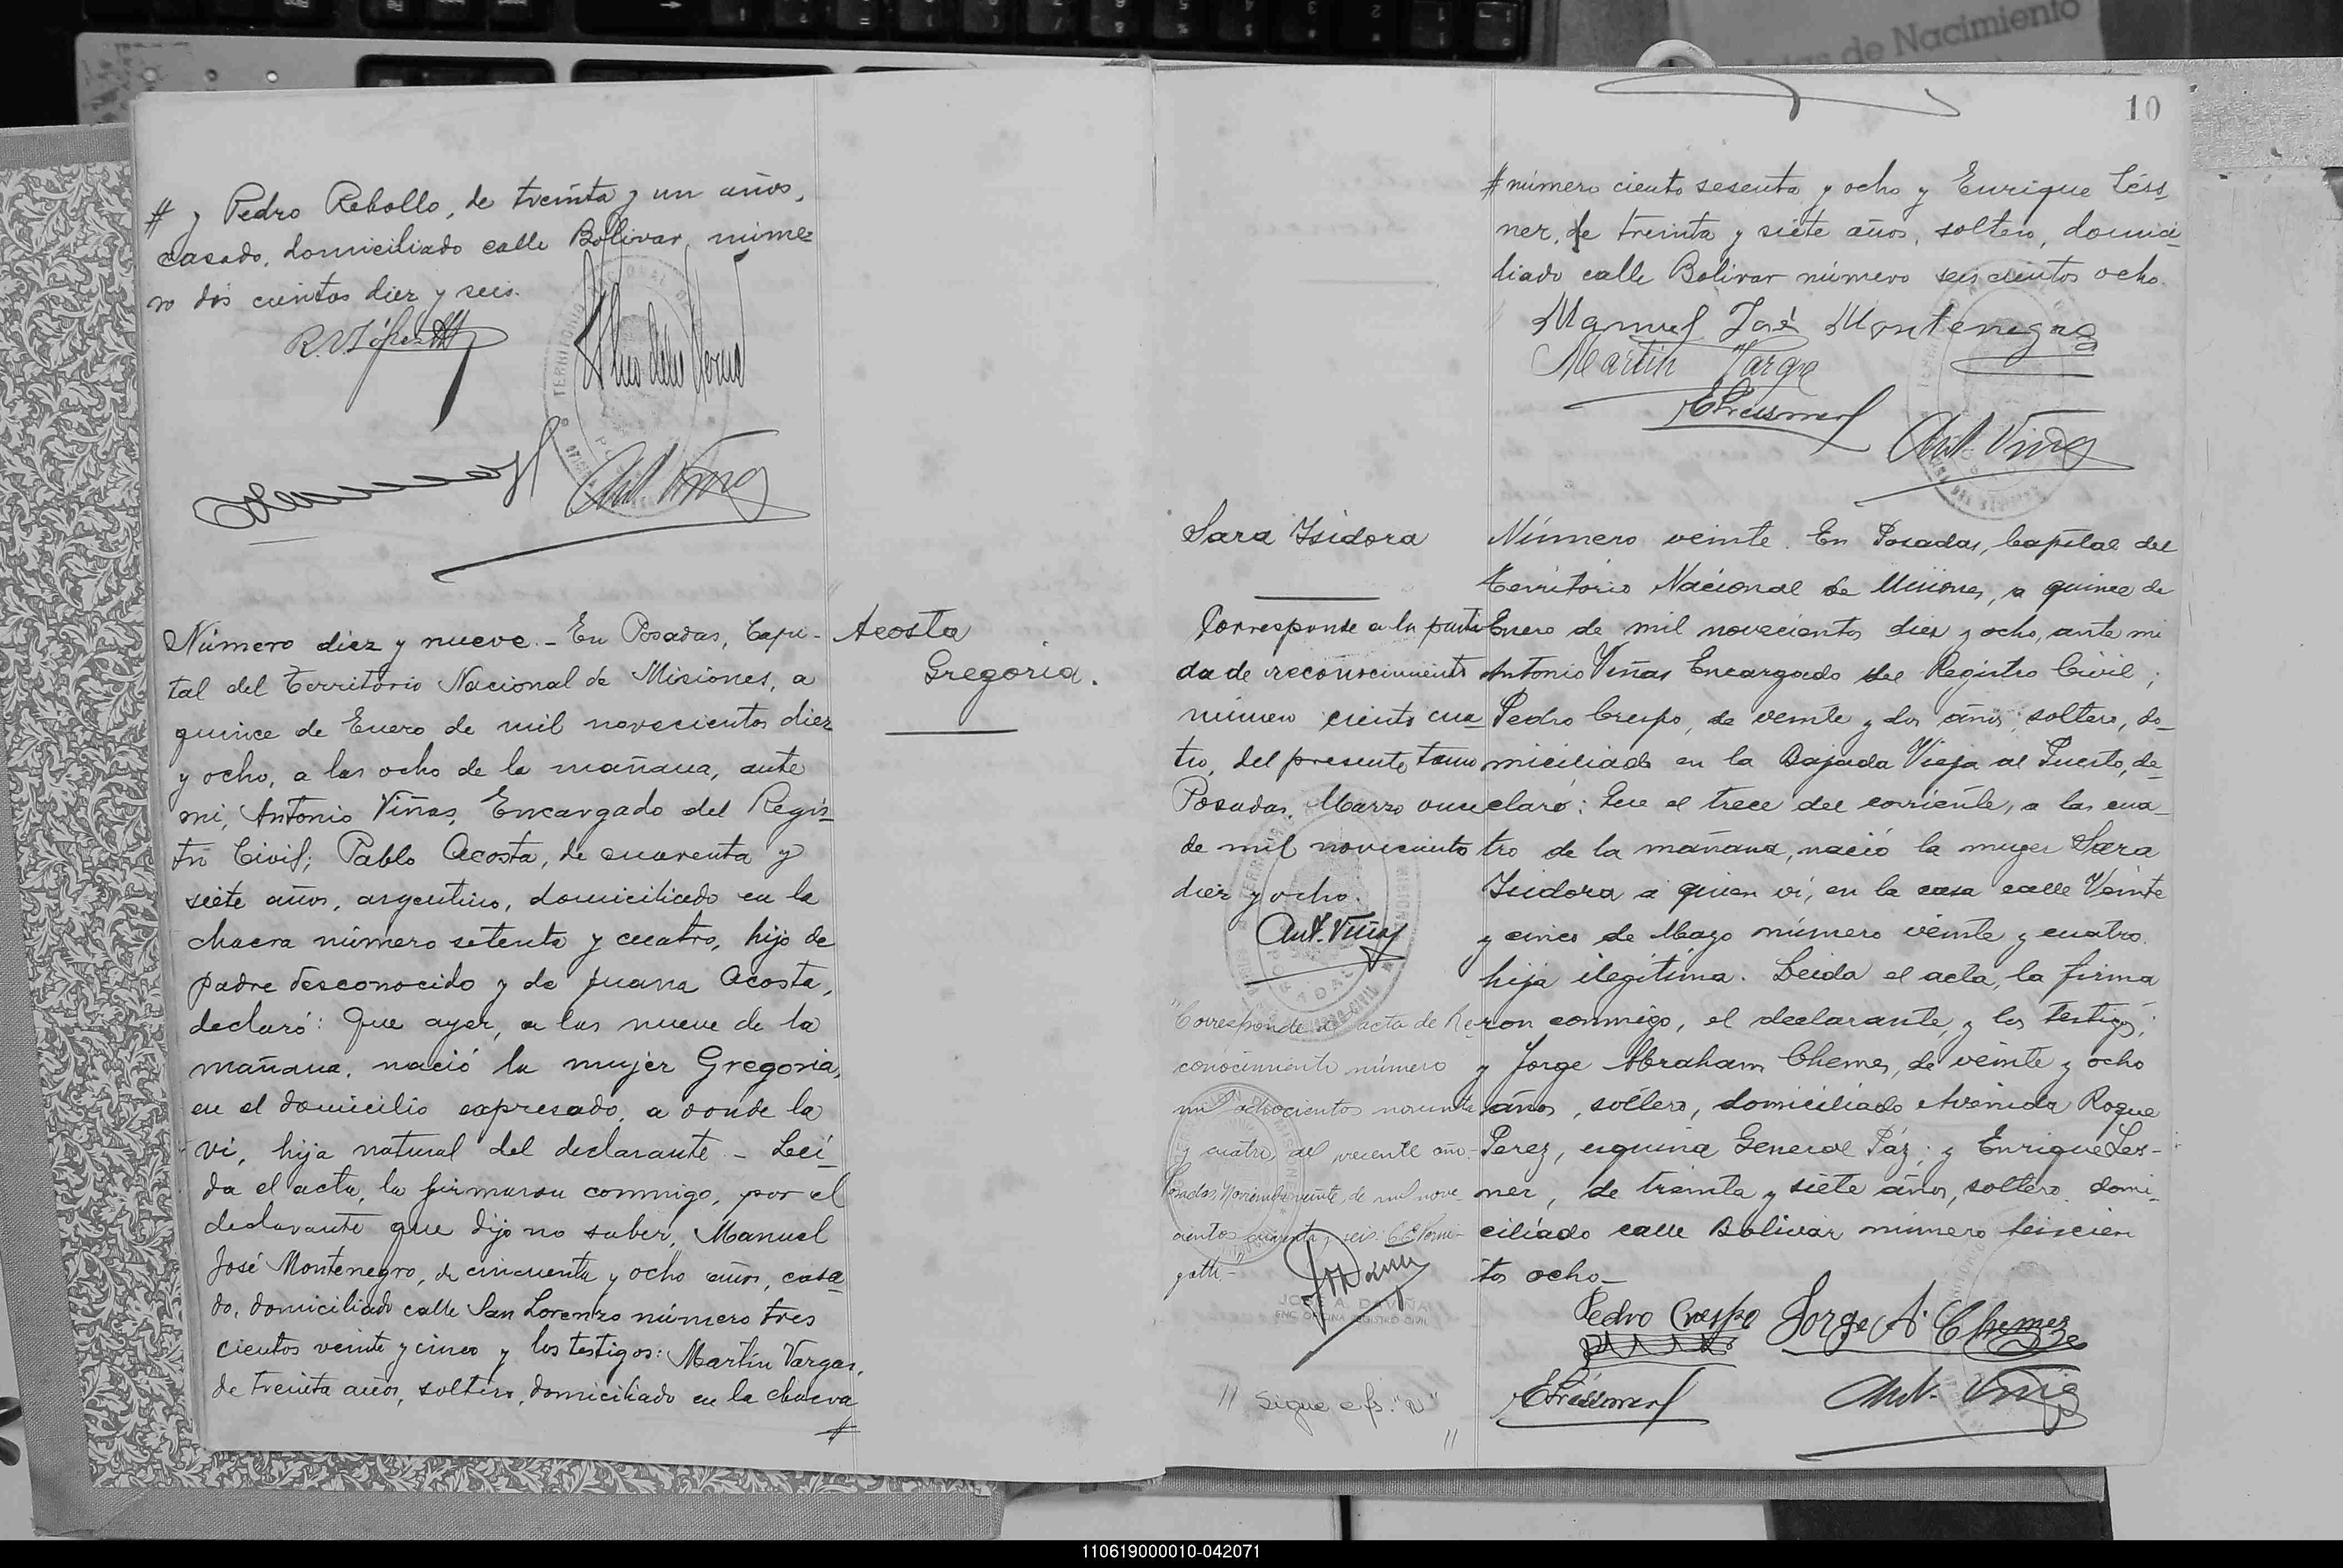 de Nacimiento
# y Pedro Rebollo, de treinta y un años,
casado, domiciliado calle Bolivar, núme-
ro dos cientos diez y seis.
Ant. Viñas
Número diez y nueve.- En Posadas, Capi-
tal del Territorio Nacional de Misiones, a
quince de Enero de mil novecientos diez
y ocho, a las ocho de la mañana, ante
mi, Antonio Viñas, Encargado del Regis-
tro Civil; Pablo Acosta, de cuarenta y
siete años, argentino, domiciliado en la
chacra número setenta y cuatro, hijo de
padre desconocido y de Juana Acosta,
declaró: Que ayer, a las nueve de la
mañana, nació la mujer Gregoria,
en el domicilio expresado, a donde la
ví, hija natural del declarante - Leí-
da el acta, la firmaron conmigo, por el
declarante que dijo no saber, Manuel
José Montenegro, de cincuenta y ocho años, casa-
do, domiciliado calle San Lorenzo número tres
cientos veinte y cinco y los testigos: Martín Vargas,
de treinta años, soltero, domiciliado en la chacra
#
Acosta
Gregoria.
10
# número ciento sesenta y ocho y Enrique Léss-
ner, de treinta y siete años, soltero, domici-
liado calle Bolivar número seiscientos ocho.
Manuel José Montenegro
Martin Varga
Ant. Viñas
Sara Isidora
Corresponde a la parti-
da de reconocimiento
número ciento cua-
tro, del presente tomo
Posadas, Marzo once
de mil novecientos
diez y ocho.
Ant. Viñas
"Corresponde al acta de Re-
conocimiento número
mil ochocientos noventa
y cuatro del presente año.-
Posadas, Noviembre veinte de mil nove-
cientos cuarenta y seis.
JOSE A. DAVIÑA
ENC. OFICINA REGISTRO CIVIL
// Sigue a fs.
//
Número veinte. En Posadas, Capital del
Territorio Nacional de Misiones, a quince de
Enero de mil novecientos diez y ocho, ante mi
Antonio Viñas Encargado del Registro Civil;
Pedro Crespo, de veinte y dos años, soltero, do-
miciliado en la Bajada Vieja al Puerto, de-
claró: Que el trece del corriente, a las cua-
tro de la mañana, nació la mujer Sara
Isidora a quien ví, en la casa calle Veinte
y cinco de Mayo número veinte y cuatro.
hija ilegítima. Leida el acta, la firma
ron conmigo, el declarante, y los testigos;
y Jorge Abraham Chemes, de veinte y ocho
años, soltero, domiciliado Avenida Roque
Perez, esquina General Páz; y Enrique Les-
ner, de treinta y siete años, soltero, domi-
ciliado calle Bolivar número seiscien
tos ocho_
Pedro Crespo Jorge A. Chemes
Ant. Viñas
110619000010-042071